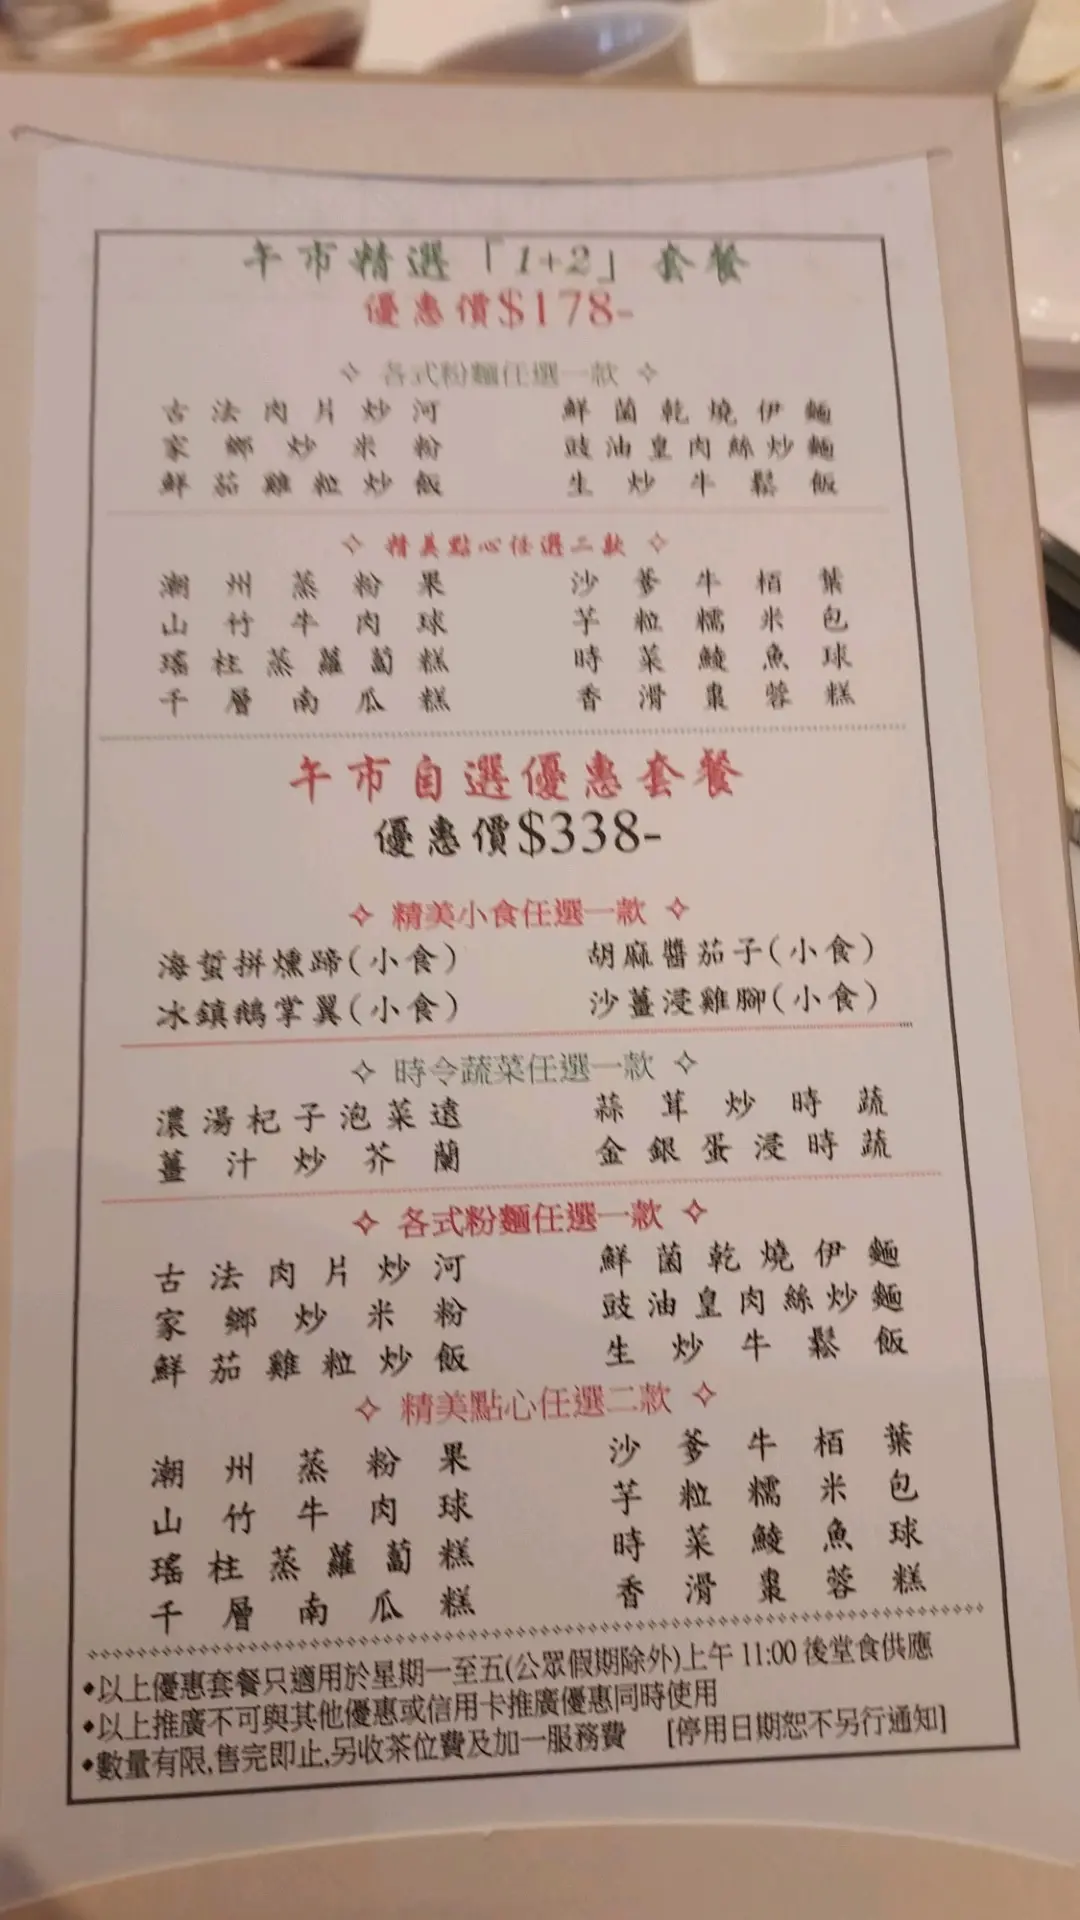 午市精選「1+2」套餐
優惠價$178-
✧ 各式粉麵任選一款 ✧
古法肉片炒河 鮮菌乾燒伊麵
家鄉炒米粉 豉油皇肉絲炒麵
鮮茄雞粒炒飯 生炒牛鬆飯
✧ 精美點心任選二款 ✧
潮州蒸粉果 沙爹牛栢葉
山竹牛肉球 芋粒糯米包
瑤柱蒸蘿蔔糕 時菜鯪魚球
千層南瓜糕 香滑棗蓉糕
午市自選優惠套餐
優惠價$338-
✧ 精美小食任選一款 ✧
海蜇拼燻蹄(小食) 胡麻醬茄子(小食)
冰鎮鵝掌翼(小食) 沙薑浸雞腳(小食)
✧ 時令蔬菜任選一款 ✧
濃湯杞子泡菜遠 蒜茸炒時蔬
薑汁炒芥蘭 金銀蛋浸時蔬
✧ 各式粉麵任選一款 ✧
古法肉片炒河 鮮菌乾燒伊麵
家鄉炒米粉 豉油皇肉絲炒麵
鮮茄雞粒炒飯 生炒牛鬆飯
✧ 精美點心任選二款 ✧
潮州蒸粉果 沙爹牛栢葉
山竹牛肉球 芋粒糯米包
瑤柱蒸蘿蔔糕 時菜鯪魚球
千層南瓜糕 香滑棗蓉糕
•以上優惠套餐只適用於星期一至五(公眾假期除外)上午 11:00 後堂食供應
•以上推廣不可與其他優惠或信用卡推廣優惠同時使用
•數量有限,售完即止,另收茶位費及加一服務費 [停用日期恕不另行通知]